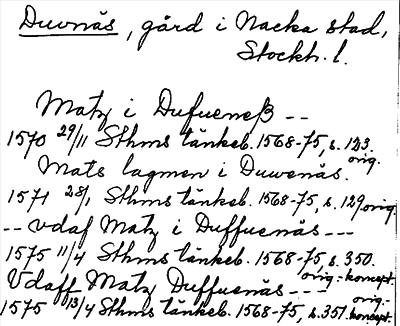 Duvnäs, gård i Nacka stad,
Stockh. l.
Matz i Dufueneß --
1570 29/11 Sthms tänkeb. 1568-75, s. 123.
orig.
Mats lagmen i Duwenäs.
1571 28/1 Sthms tänkeb. 1568-75, s. 129 orig.
-- vdaf Matz i Duffuenäs ---
1575 11/4 Sthms tänkeb. 1568-75, s. 350.
orig.- koncept.
Vdaff Matz Duffuenäs --
1575 13/4 Sthms tänkeb. 1568-75, s. 351. orig.- koncept.